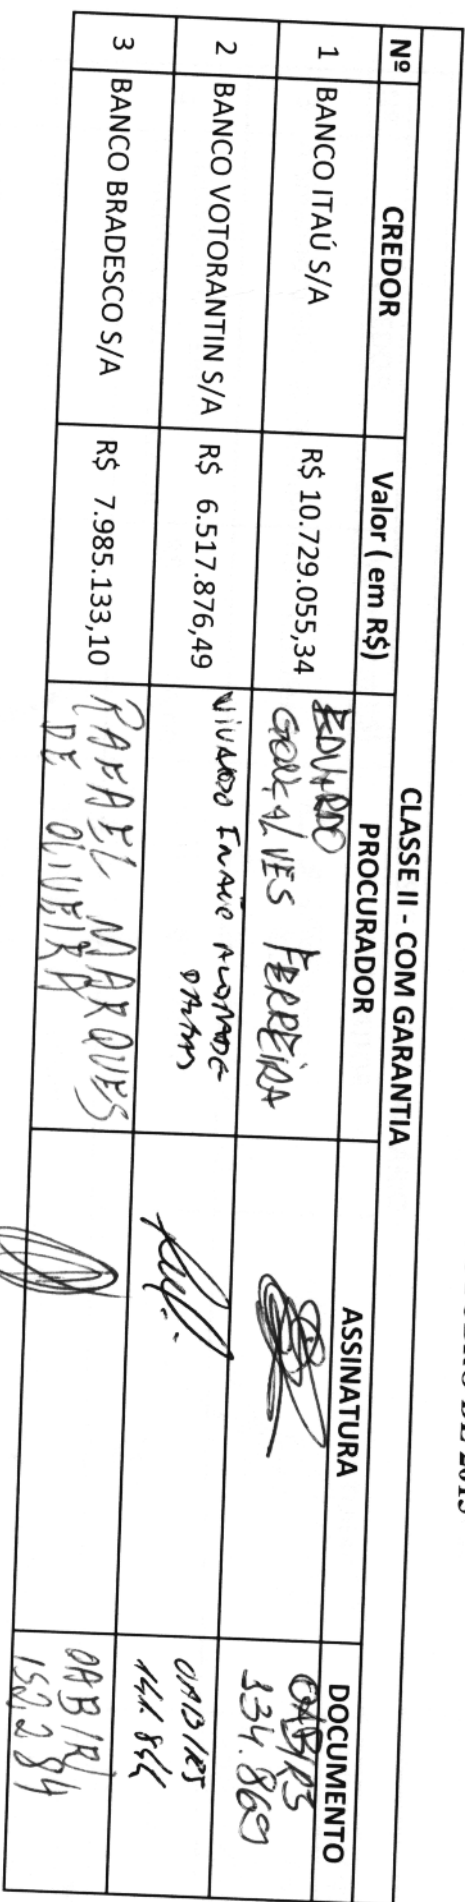 DE 2015
CLASSE II - COM GARANTIA
Nº CREDOR Valor ( em R$) PROCURADOR ASSINATURA DOCUMENTO
1 BANCO ITAÚ S/A R$ 10.729.055,34 EDUARDO GONÇALVES FERREIRA 334.869
2 BANCO VOTORANTIN S/A R$ 6.517.876,49
3 BANCO BRADESCO S/A R$ 7.985.133,10 RAFAEL MARQUES DE OLIVEIRA 152.284